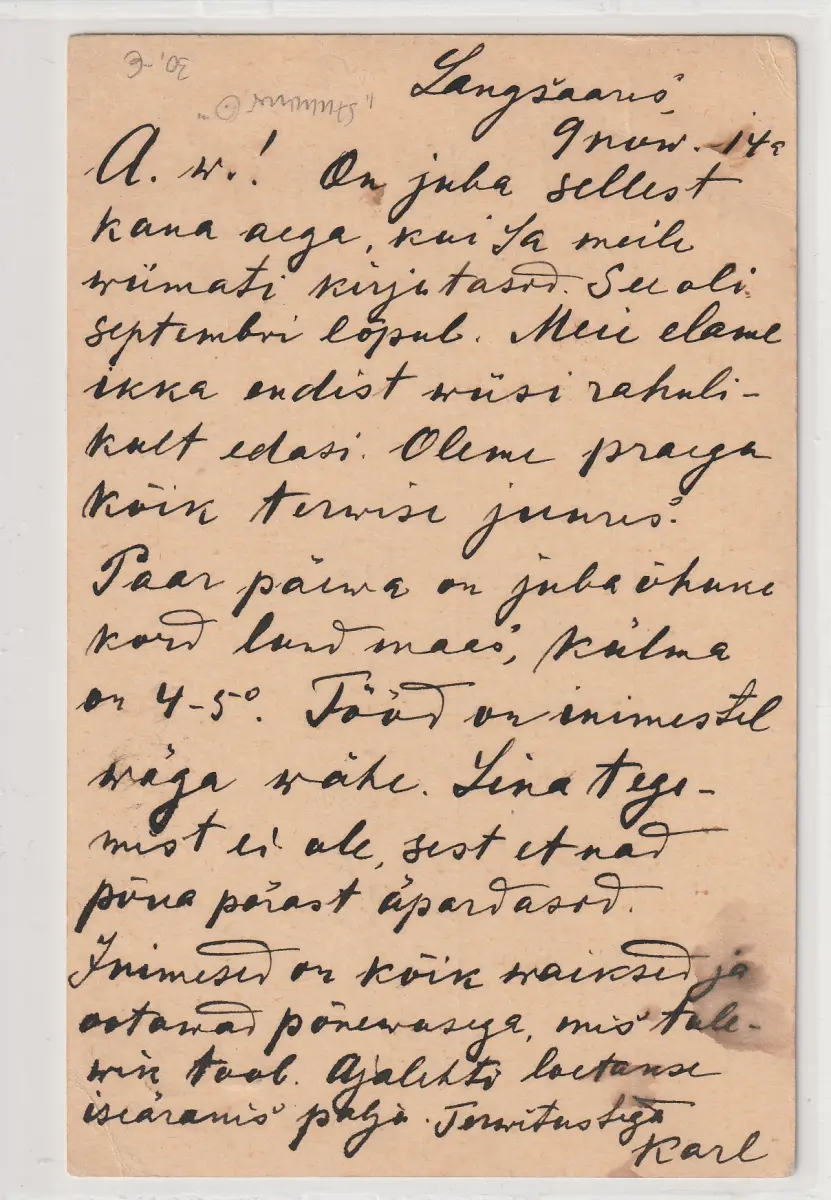 30,-€
Langšaares
9 now. 14a
A. w.! On juba sellest
kaua aega, kui Sa meile
wiimati kirjutasid. See oli
septembri lõpul. Meie elame
ikka endist wiisi rahuli-
kult edasi. Oleme praegu
kõik terwise juures.
Paar päewa on juba õhuke
kord lund maas, külma
on 4-5°. Tööd on inimestel
wäga wähe. Lina tege-
mist ei ole, sest et nad
põua pärast äpardasid.
Inimesed on kõik waiksed ja
ootawad põnewusega, mis tule-
wik toob. Ajalehti loetakse
iseäranis palju. Terwitustega
Karl